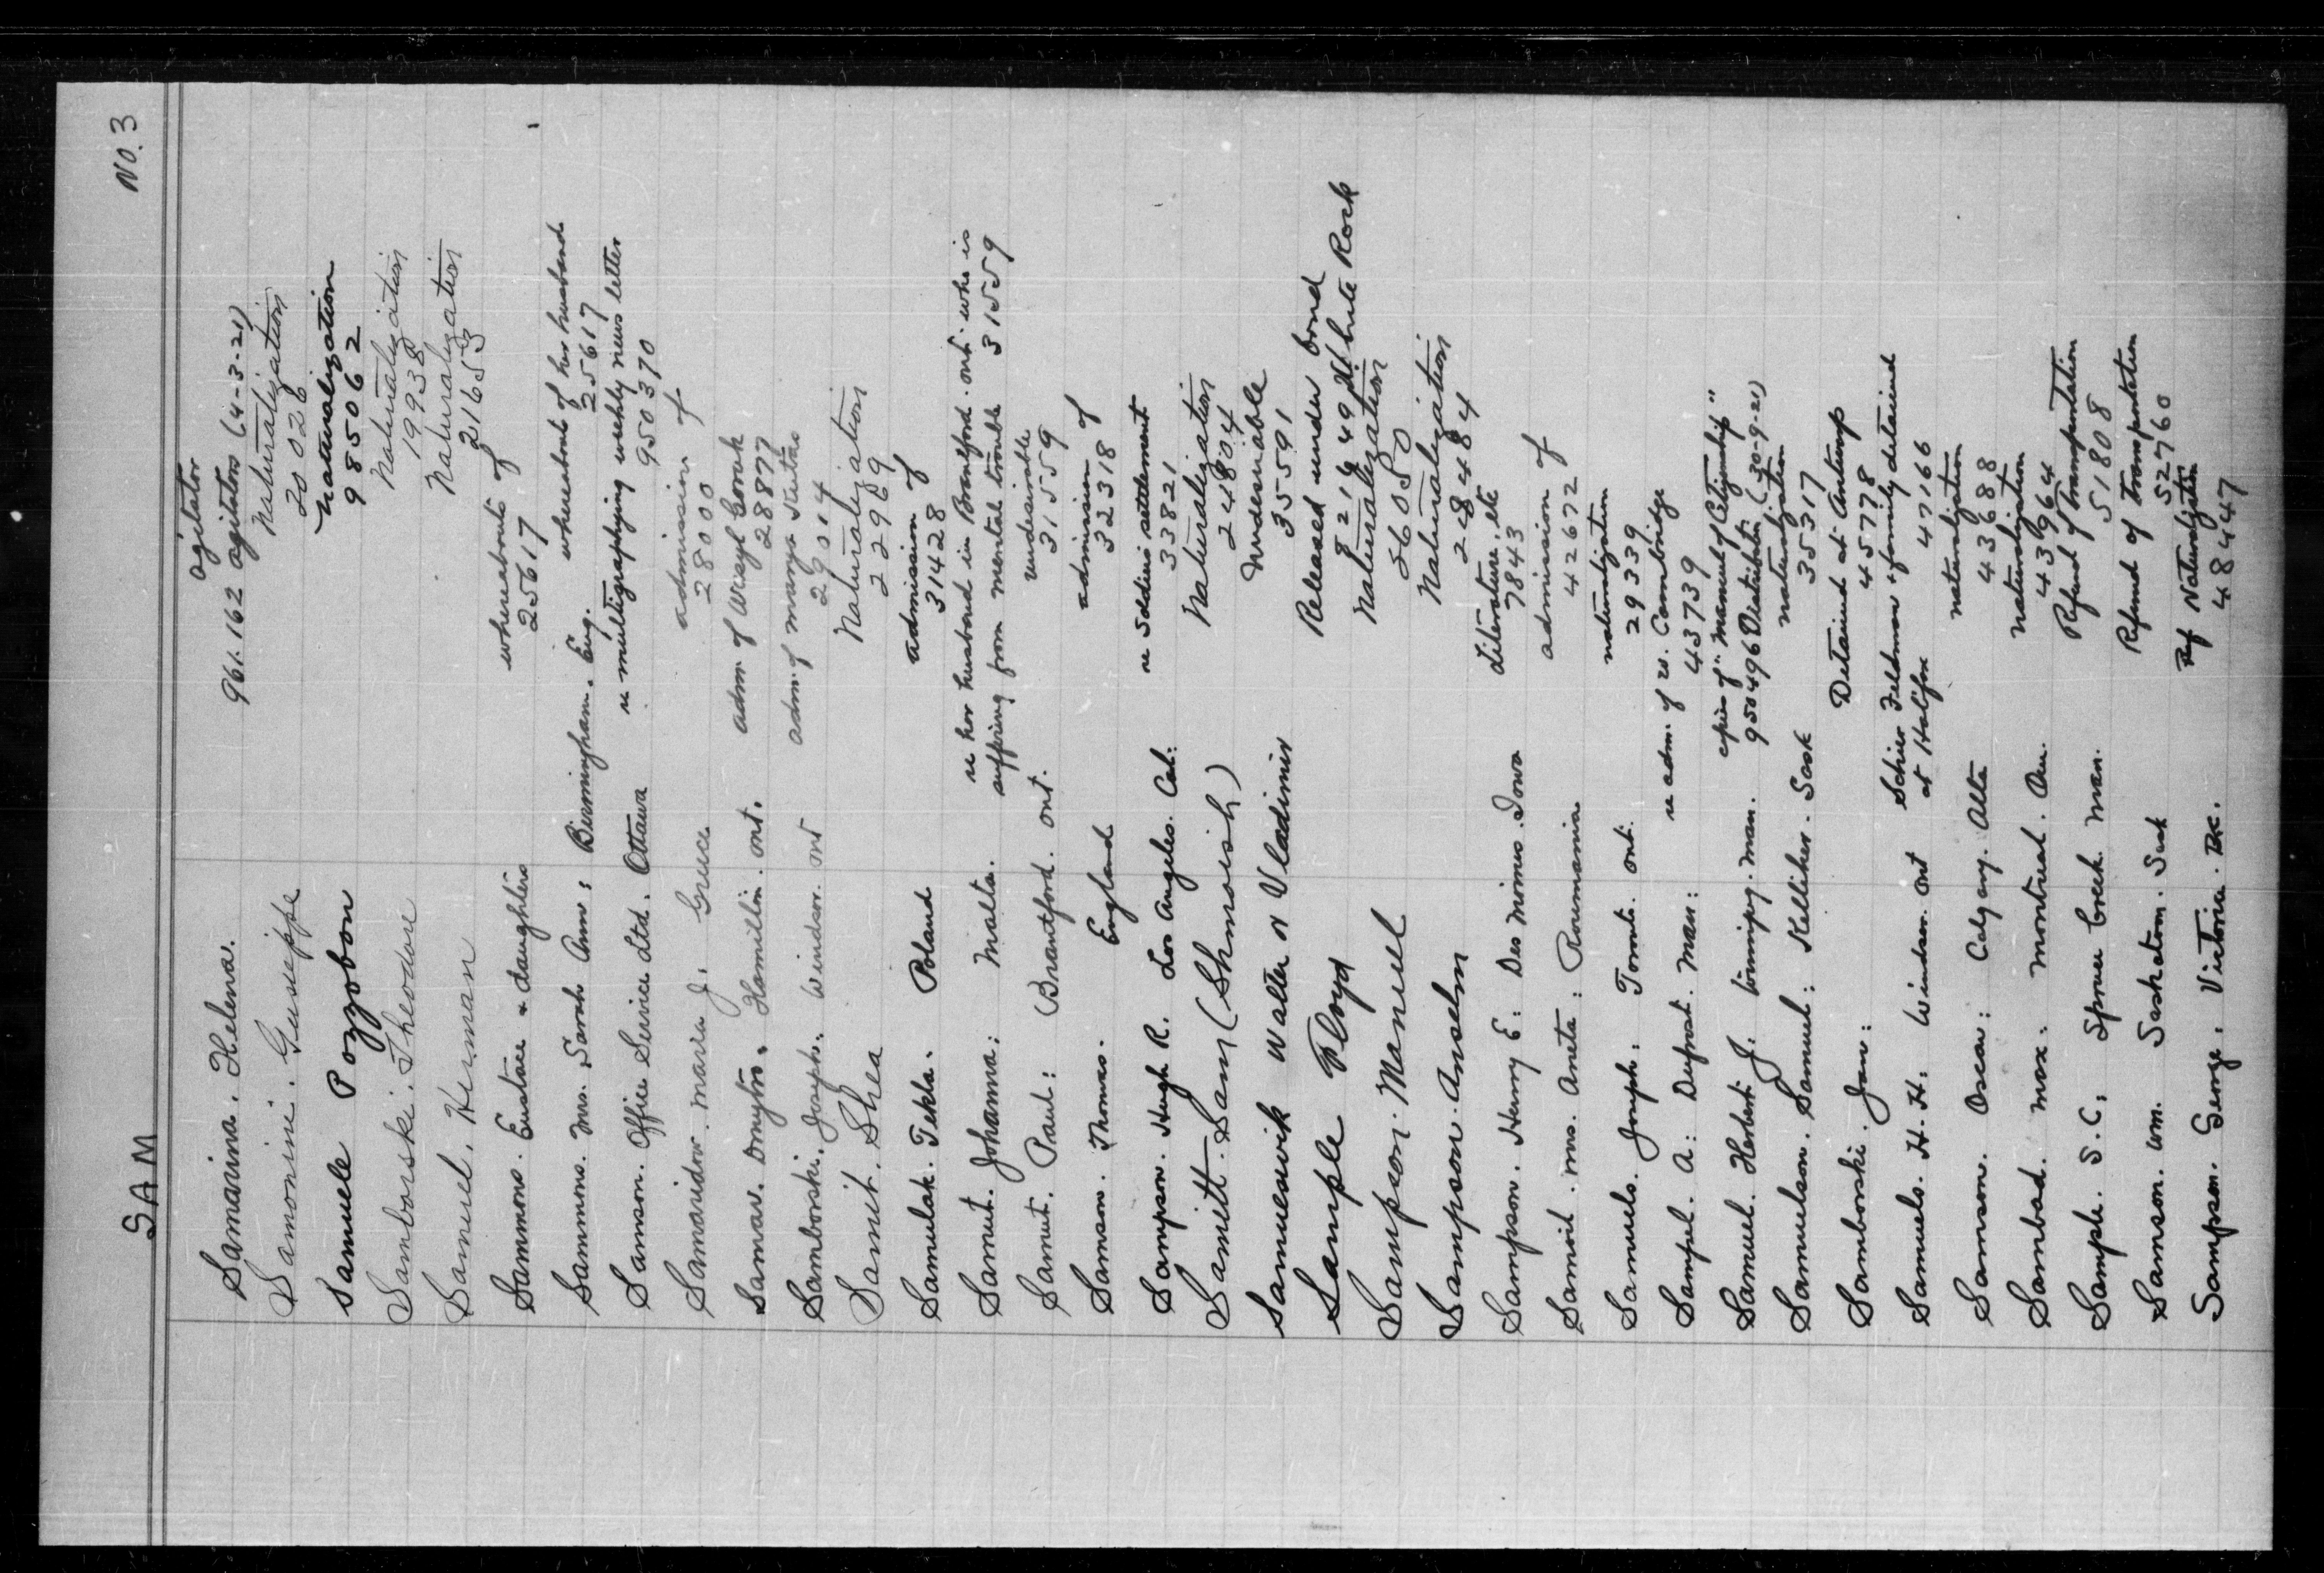 SAM
NO. 3
agitator
Samarina. Helena. 961.162 agitators (4-3-21)
Samonini. Guiseppe Naturalization
20026
Samuele Pozzobon Naturalization
985062
Samborski. Theodore Naturalization
19938
Samuel. Herman Naturalization
21653
Sammons. Eustace & daughters whereabouts of
25617
Sammons. Mrs. Sarah Ann: Birmingham. Eng. whereabouts of her husband
25617
Samson. Office Service Ltd. Ottawa re multigraphing weekly news letter
950370
Samaridor. Maria J. Greece admission of
28000
Samas. Dmytro. Hamilton. Ont. adm. of Wasyl
28877
Samborski. Joseph. Windsor. Ont adm. of
29014
Samit. Shea Naturalization
22969
Samulak. Tekla. Poland admission of
31428
Samut. Johanna: Malta. re her husband in Brantford. Ont. who is
suffering from mental trouble 31559
Samut. Paul: Brantford. Ont. undesirable
31559
Samson. Thomas. England admission of
32318
Sampson. Hugh R. Los Angeles. Cal: re Soldiers settlement
33821
Samitt. Sam (Shmoish) Naturalization
24804
Samueswik Walter or Vladimir Undesirable
35591
Sample Floyd Released under bond
821649 White Rock
Sampson. Manuel Naturalization
26050
Sampson. Anselm Naturalization
248484
Sampson. Henry E: Des Moines. Iowa Literature, etc
78443
Samoil. Mrs. Aneta: Roumania admission of
42672
Samuels. Joseph: Toronto. Ont: naturalization
29339
Sampel. A: Dufrost. Man: re adm. of W. Cambridge
43739
Samuel. Herbert J. Winnipeg. Man. copies of "Manual of Citizenship"
950496 Distributn (30-9-21)
Samuelson. Samuel: Kelliher. Sask naturalization
35317
Samborski. Jan: Detained at Antwerp
45778
Samuels. H. H: Windsor. Ont Schier Feldman & family detained
at Halifax 47166
Samson. Oscar: Calgary. Alta naturalization
43688
Sambad. Max: Montreal. Que. naturalization
43964
Sample. S. C: Spruce Creek. Man. Refund of Transportation
51808
Samson. Wm. Saskatoon. Sask Refund of transportation
52760
Sampson. George. Victoria. B.C. Ref Naturalization
48447